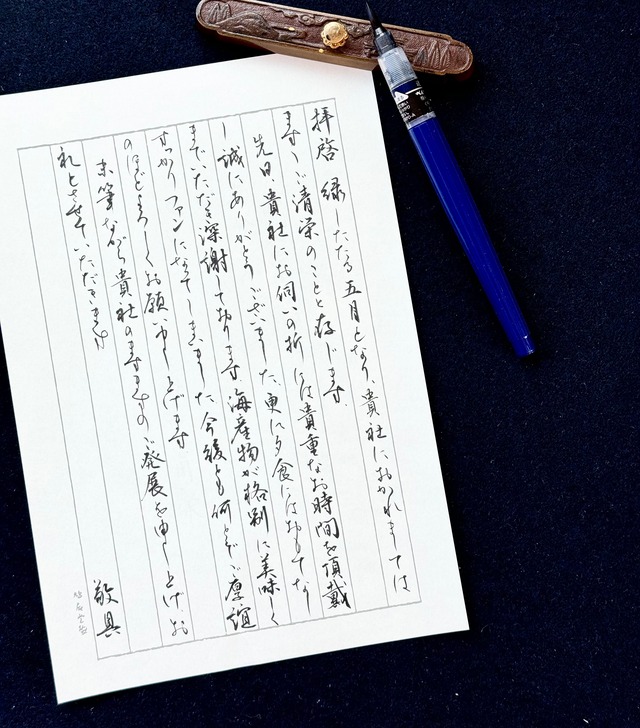 拝啓 緑したたる五月となり、貴社におかれましては
ます〱ご清栄のことと存じます.
先日、貴社にお伺いの折には貴重なお時間を頂戴
し誠にありがとうございました、更に夕食にはおもてな
まで、いただき深謝しております 海産物が格別に美味しく
すっかりファンになってしまいました、今後とも何とぞご厚誼
のほどよろしくお願い申し上げます
末筆ながら貴社のますますのご発展を申し上げ、お
礼とさせていただきます
敬具